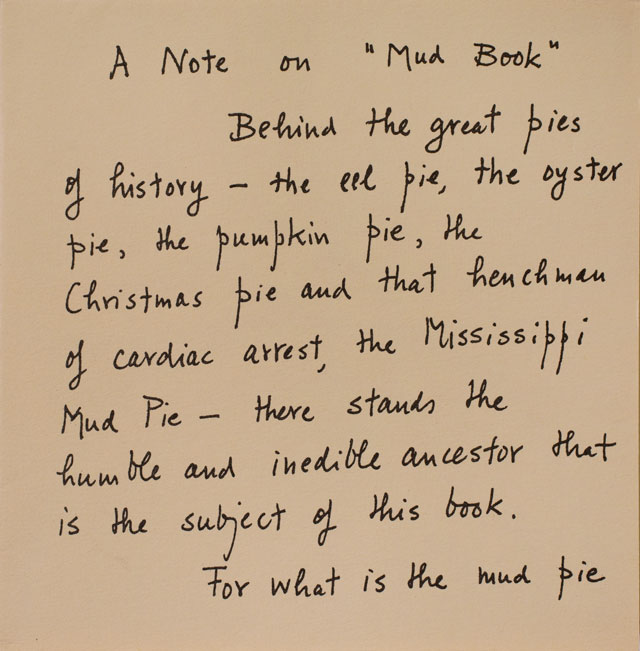 A Note on "Mud Book"
Behind the great pies
of history – the eel pie, the oyster
pie, the pumpkin pie, the
Christmas pie and that henchman
of cardiac arrest, the Mississippi
Mud Pie – there stands the
humble and inedible ancestor that
is the subject of this book.
For what is the mud pie